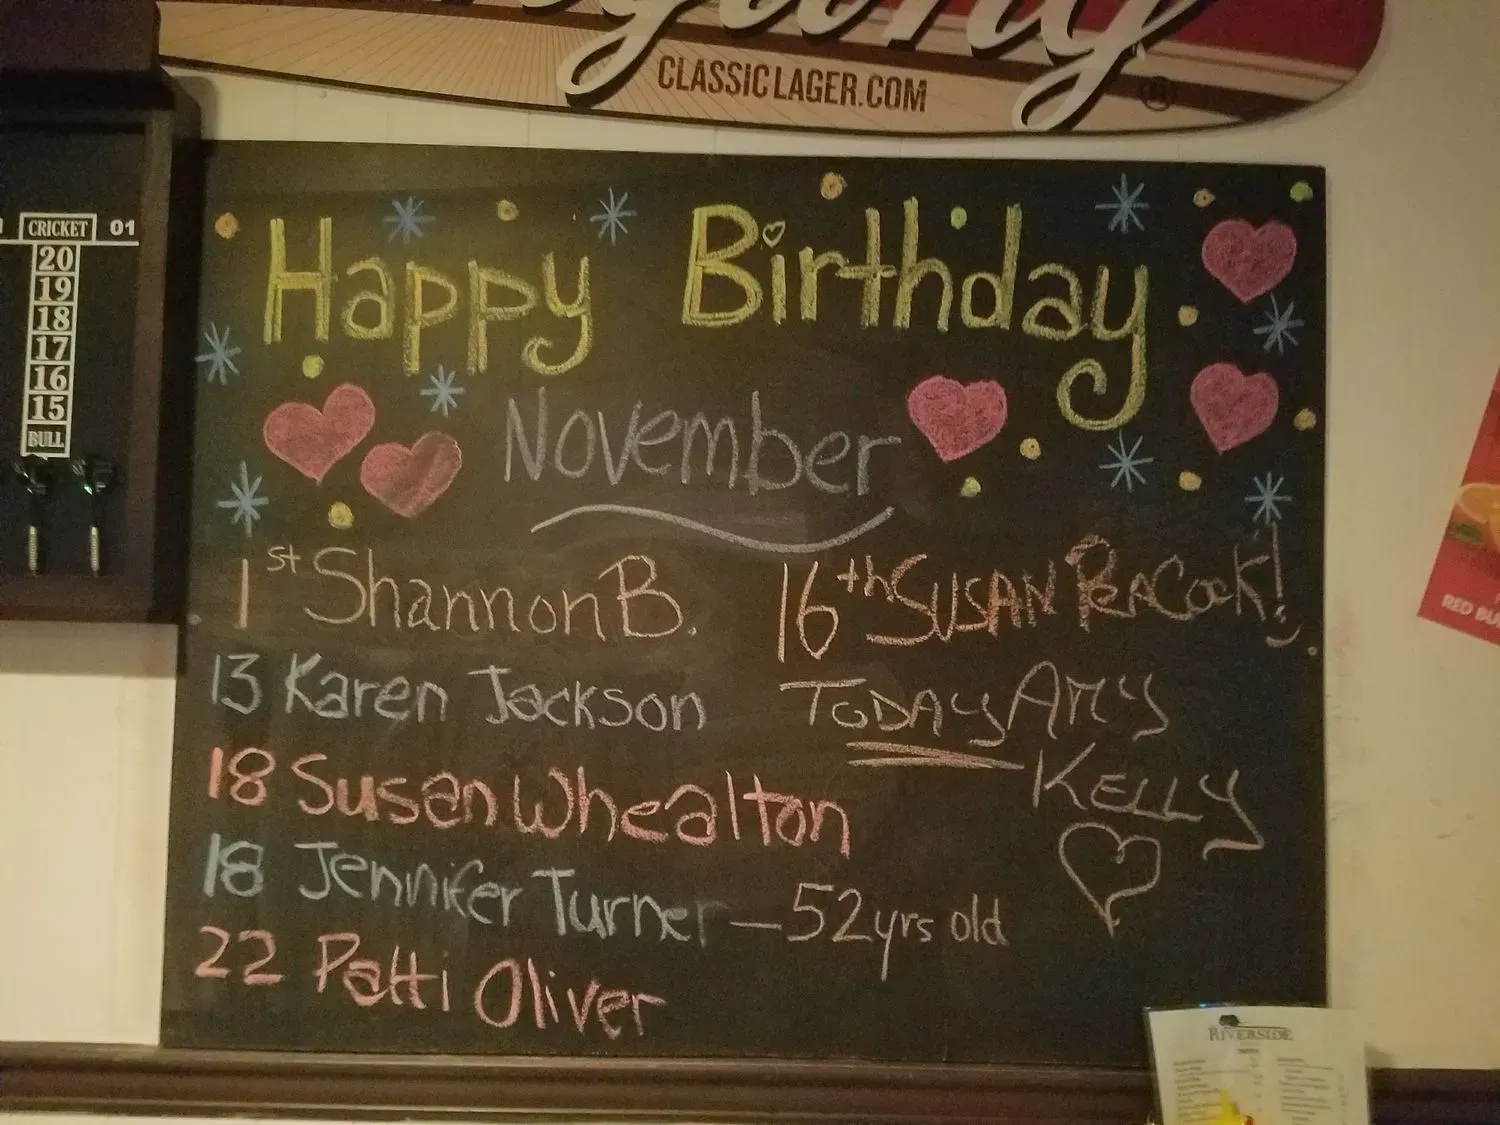 CLASSICLAGER.COM
CRICKET 01
20
19
18
17
16
15
BULL
Happy Birthday
November
1st Shannon B.
13 Karen Jackson
18 Susan Whealton
18 Jennifer Turner – 52 yrs old
22 Patti Oliver
16th SUSAN PEACOCK!
TODAY AMY
KELLY
RED BU
RIVERSIDE